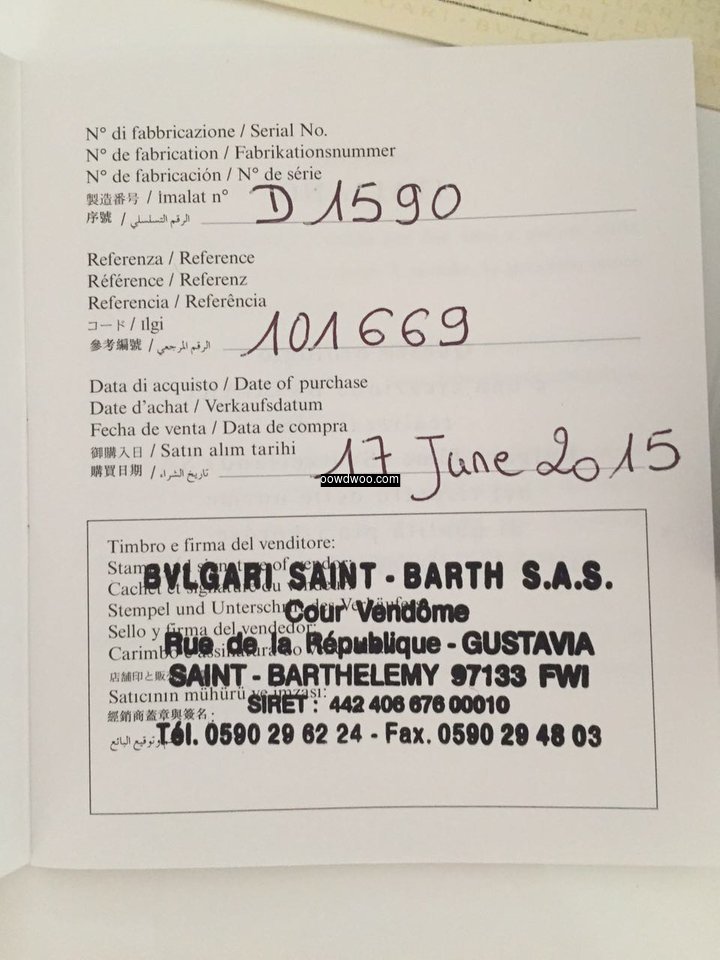 N° di fabbricazione / Serial No.
N° de fabrication / Fabrikationsnummer
N° de fabricación / N° de série
製造番号 / imalat n° D1590
序號 / الرقم التسلسلي
Referenza / Reference
Référence / Referenz
Referencia / Referência
コード / Ilgi
參考編號 / الرقم المرجعي 101669
Data di acquisto / Date of purchase
Date d'achat / Verkaufsdatum
Fecha de venta / Data de compra
御購入日 / Satın alım tarihi
購買日期 / تاريخ الشراء 17 June 2015
oowdwoo.com
Timbro e firma del venditore:
Stamp and signature of vendor:
BVLGARI SAINT - BARTH S.A.S.
Cachet et signature du vendeur:
Stempel und Unterschrift des Verkäufers:
Cour Vendôme
Sello y firma del vendedor:
Rue de la République - GUSTAVIA
Carimbo e assinatura do
SAINT - BARTHELEMY 97133 FWI
店舗印と販
Satıcının mühürü ve imzası:
SIRET : 442 406 676 00010
經銷商蓋章與簽名:
وتوقيع البائع
Tél. 0590 29 62 24 - Fax. 0590 29 48 03